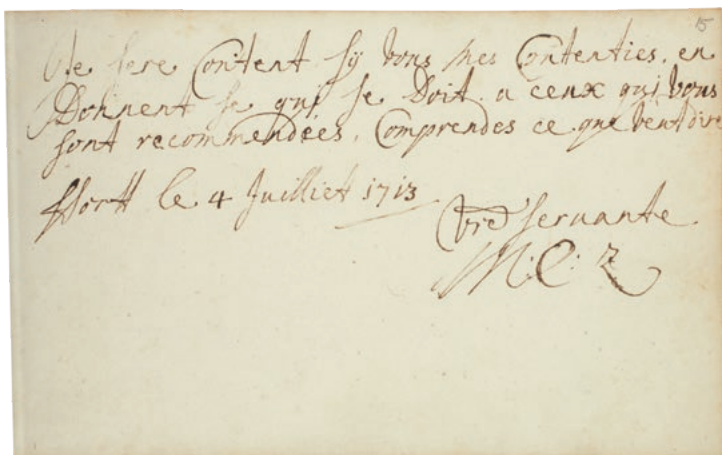 15
Je sere Content sy vous mes Contenties, en
Donnent se qui se Doit a ceux qui vous
sont recommendées, Comprendes ce que veut dire
le 4 Juilliet 1713
vre servante
M: C: Z